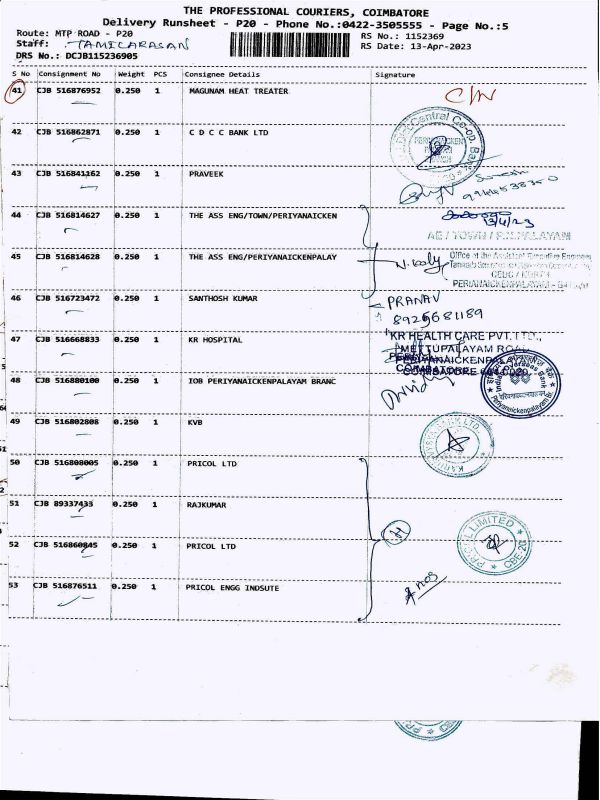 THE PROFESSIONAL COURIERS, COIMBATORE
Delivery Runsheet - P20 - Phone No.:0422-3505555 - Page No.:5
Route: MTP ROAD - P20 RS No.: 1152369
Staff: TAMILARASAN RS Date: 13-Apr-2023
DRS No.: DCJB115236905
S No Consignment No Weight PCS Consignee Details Signature
41 CJB 516876952 0.250 1 MAGUNAM HEAT TREATER C/N
42 CJB 516862871 0.250 1 C D C C BANK LTD
Central Co-op. Bank
43 CJB 516841162 0.250 1 PRAVEEK
44 CJB 516814627 0.250 1 THE ASS ENG/TOWN/PERIYANAICKEN
13/4/23
AE / TOWN / P.N.PALAYAM
45 CJB 516814628 0.250 1 THE ASS ENG/PERIYANAICKENPALAY
Office of the Assistant Executive Engineer
46 CJB 516723472 0.250 1 SANTHOSH KUMAR
PRANAV
8925681189
47 CJB 516668833 0.250 1 KR HOSPITAL
KR HEALTH CARE PVT.LTD.,
METTUPALAYAM ROAD
PERIYANAICKENPALAYAM
48 CJB 516880100 0.250 1 IOB PERIYANAICKENPALAYAM BRANC
Indian Overseas Bank
49 CJB 516802808 0.250 1 KVB
50 CJB 516808005 0.250 1 PRICOL LTD
51 CJB 89337435 0.250 1 RAJKUMAR
52 CJB 516860845 0.250 1 PRICOL LTD
PRICOL LIMITED
CBE 20
53 CJB 516876511 0.250 1 PRICOL ENGG INDSUTE
4 nos